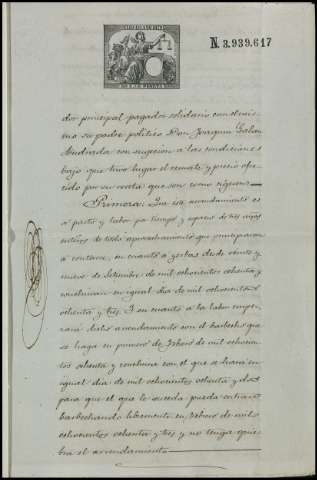 N. 3.939.617
dor principal pagador solidario con el mis-
mo su padre politico Don Joaquin Galan
Andrada con sugecion a las condiciones
bajo que tuvo lugar el remate y precio ofre-
cido por su renta que son como siguen:
Primera: Que este arrendamiento es
a pasto y labor por tiempo y espacio de tres años
enteros de todo aprovechamiento que principiaran
a contarse, en cuanto a yerbas desde veinte y
nueve de Setiembre de mil ochocientos ochenta y
concluiran en igual dia de mil ochocientos
ochenta y tres. Y en cuanto a la labor empe-
zará dicho arrendamiento con el barbecho que
se haga en primero de Febrero de mil ochocien-
tos ochenta y concluirá con el que se hará en
igual dia de mil ochocientos ochenta y dos
para que el que le suceda pueda entrar
barbechando libremente en Febrero de mil
ochocientos ochenta y tres y no tenga quie-
bra el arrendamiento